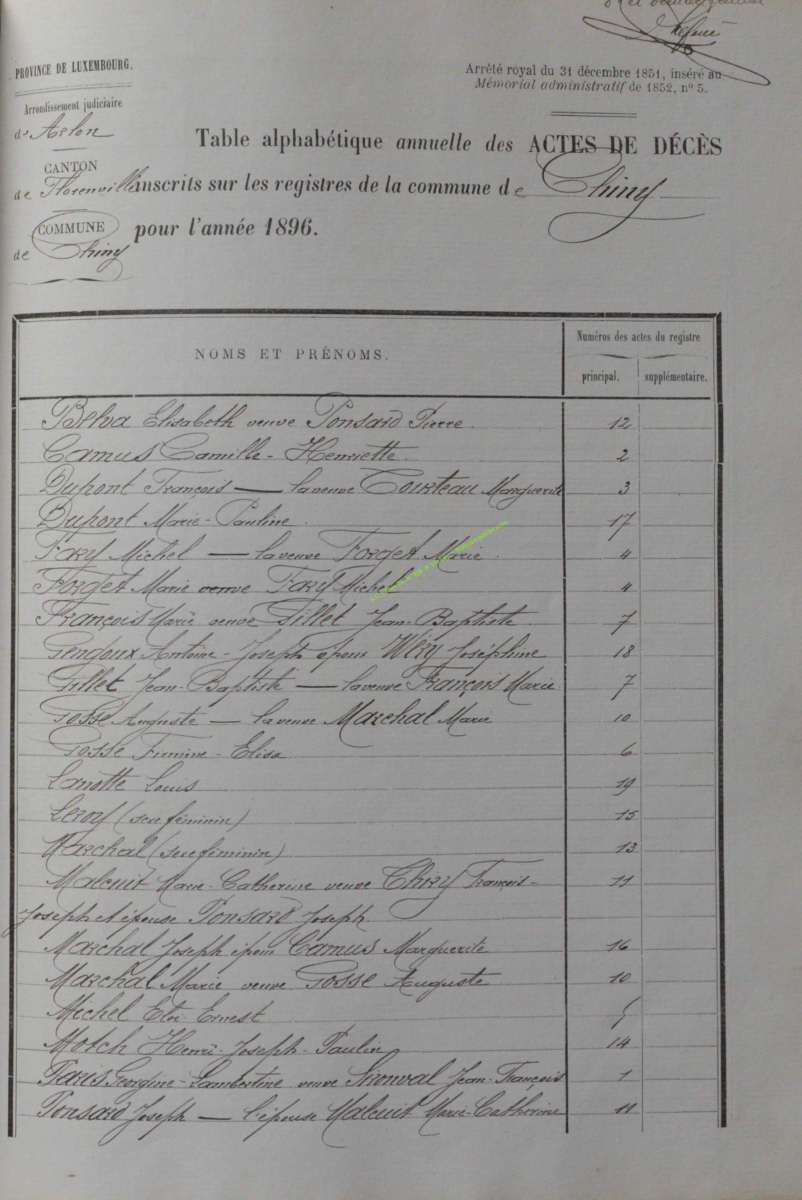 PROVINCE DE LUXEMBOURG.
Arrondissement judiciaire
de Arlon
CANTON
de Florenville
COMMUNE
de Chiny
Arrêté royal du 31 décembre 1851, inséré au
Mémorial administratif de 1852, n° 5.
Table alphabétique annuelle des ACTES DE DÉCÈS
inscrits sur les registres de la commune de Chiny
pour l'année 1896.
NOMS ET PRÉNOMS.
Numéros des actes du registre
principal. supplémentaire.
Belva Elisabeth veuve Ponsard Pierre. 12
Camus Camille-Henriette. 2
Dupont François — la veuve Courteau Marguerite 3
Dupont Marie-Pauline. 17
Fory Michel — la veuve Forget Marie. 4
Forget Marie veuve Fory Michel 4
François Marie veuve Gillet Jean-Baptiste. 7
Gendoux Antoine-Joseph époux Wéry Joséphine 18
Gillet Jean-Baptiste — la veuve François Marie 7
Gosse Auguste — la veuve Marchal Marie 10
Gosse Firmine-Elisa 6
Lamotte Louis 19
Leroy (sexe féminin) 15
Marchal (sexe féminin) 13
Malcuit Marie-Catherine veuve Thiry François- 11
Joseph et épouse Ponsard Joseph
Marchal Joseph époux Camus Marguerite 16
Marchal Marie veuve Gosse Auguste 10
Michel Ernest
Motch Henri-Joseph-Paulin 14
Paris Georgine-Lambertine veuve Jean-François 1
Ponsard Joseph — l'épouse Malcuit Marie-Catherine 11